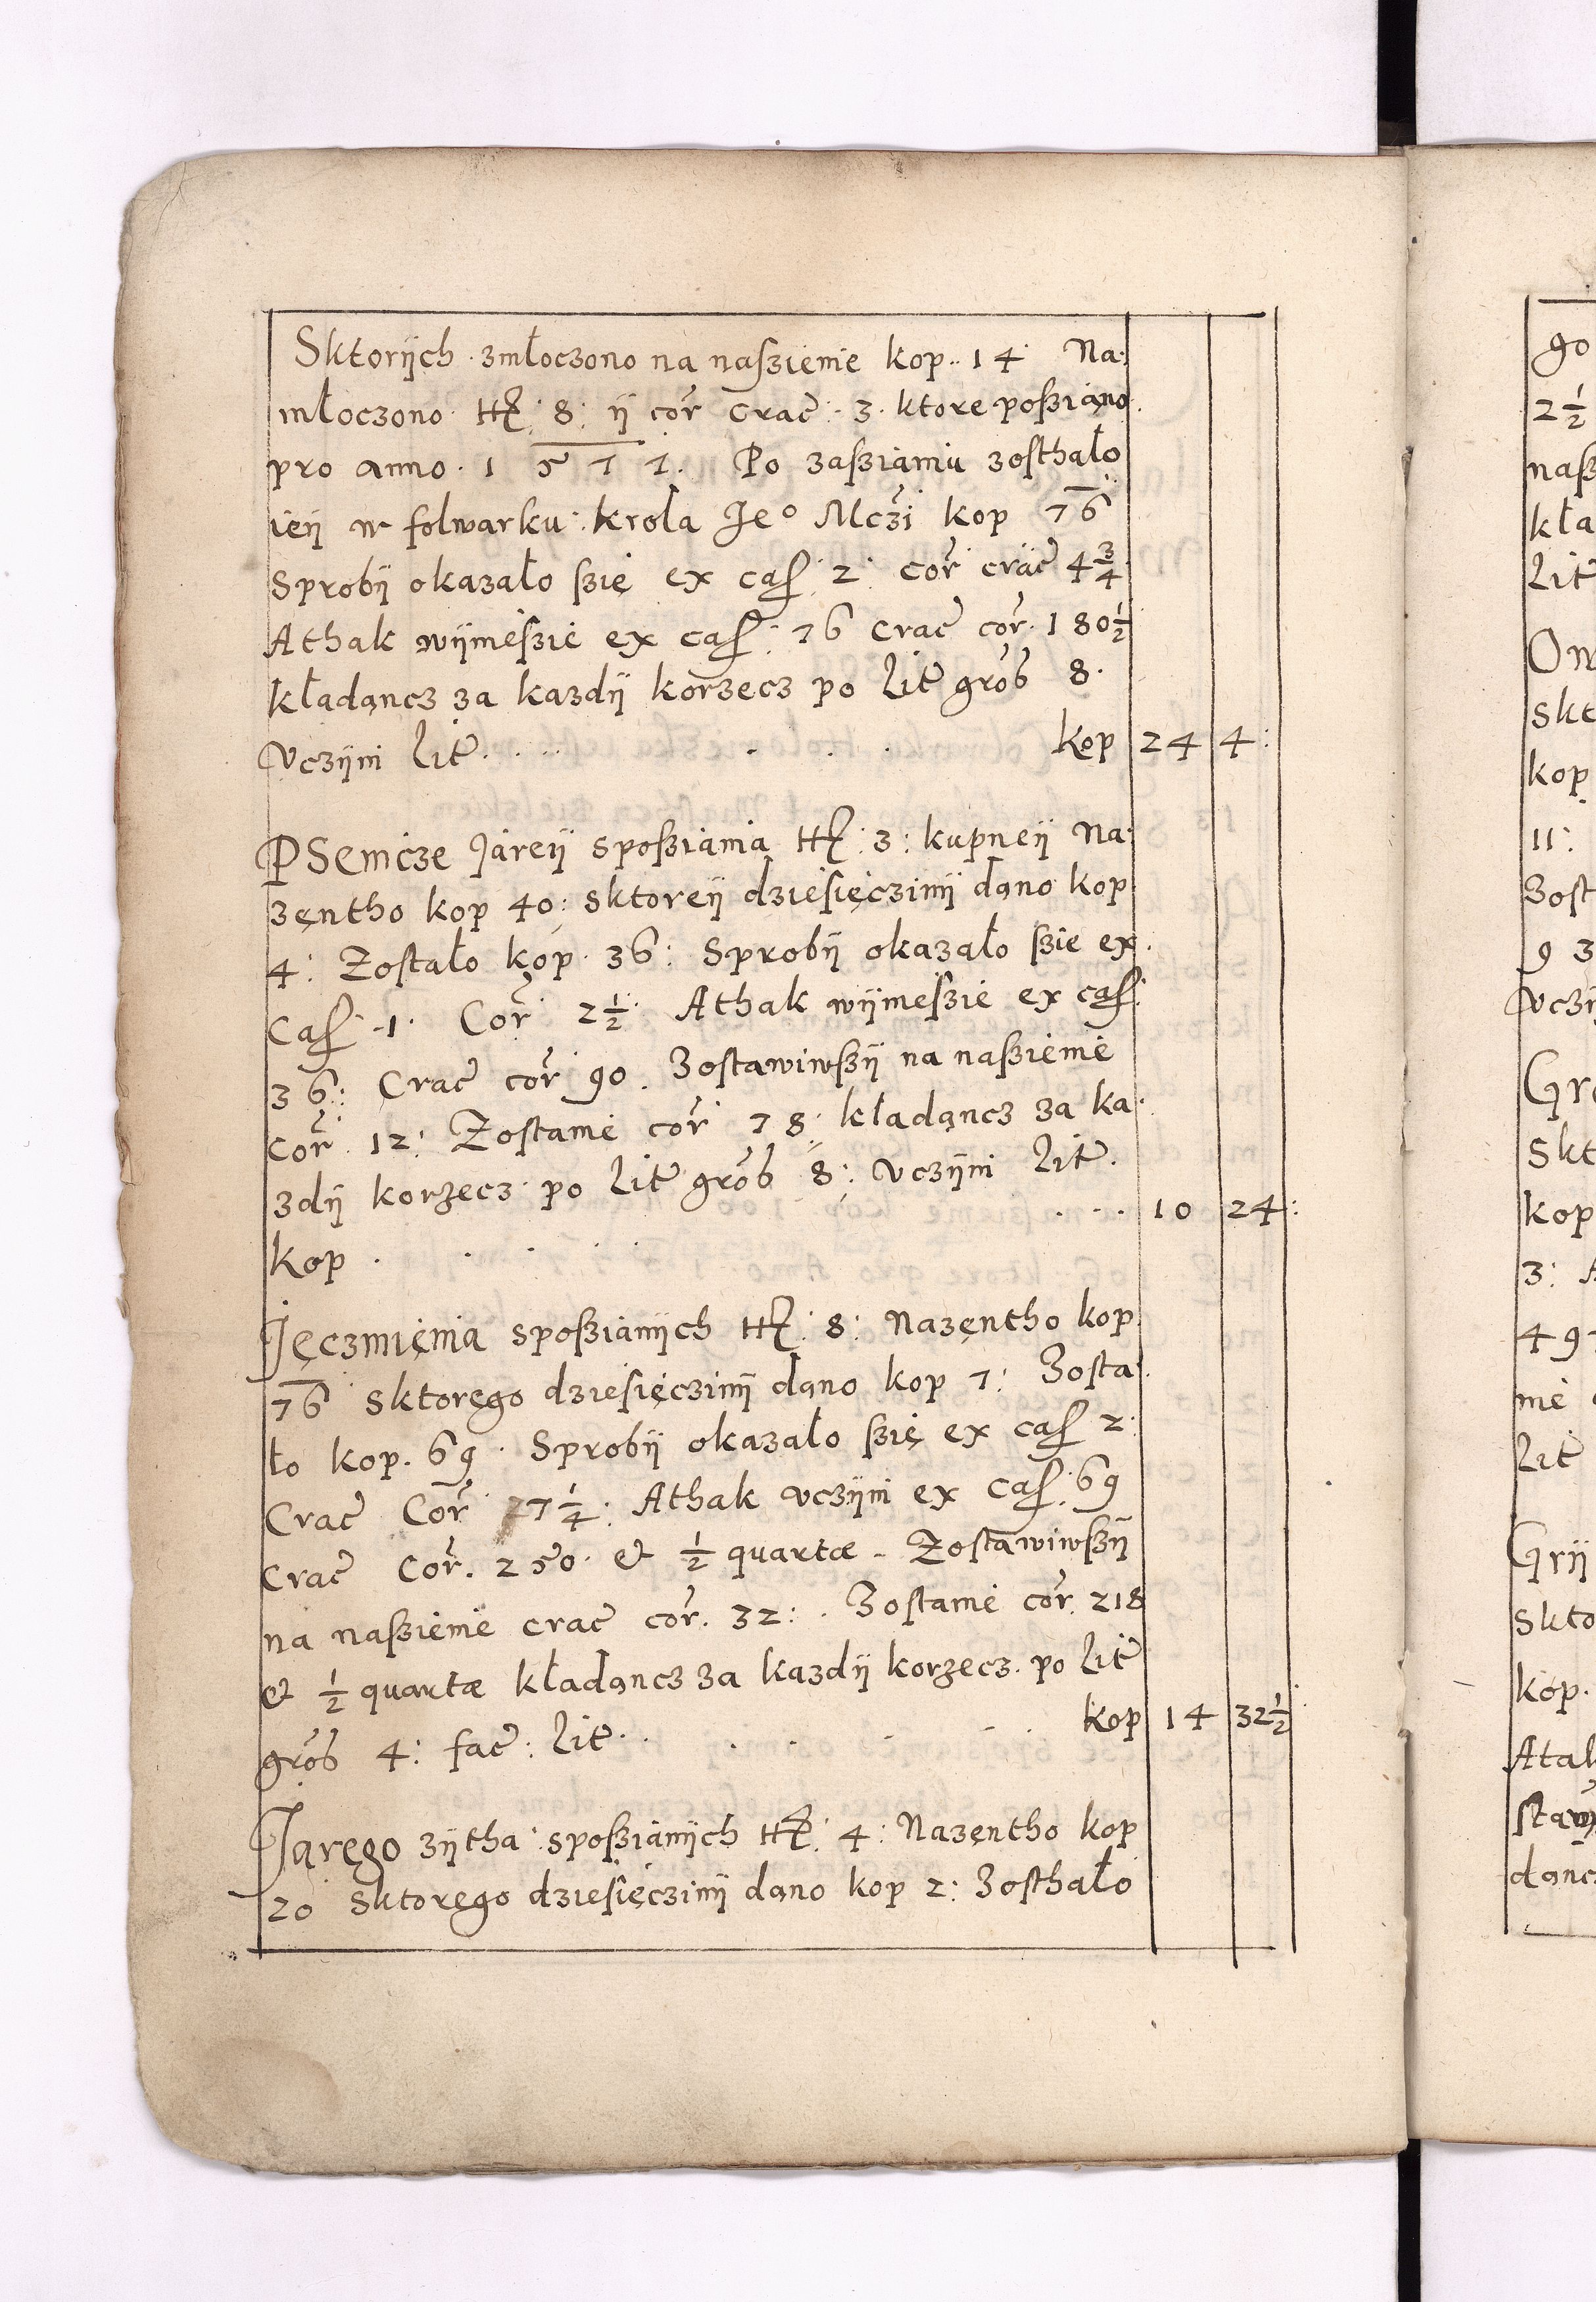 Sktorÿch zmłoczono na naszienie kop 14 Na
młoczono tʒ 8: ÿ cor crac 3. ktore posziąno
pro anno 1571. Po zasianiu zosthało
ieÿ w folwarku krola Jeº Mczi kop 76
Sprobÿ okazało szię ex cas 2 cor crac 4 3/4
Athak wÿmeszie ex cas: 76 crac cor 180 1/2
kładącz za kazdÿ korzecz po lit grosz 8.
vczÿni lit. kop 24 4:
PSenicze Jareÿ sposziania tʒ: 3: kupneÿ Na
zentho kop 40: sktoreÿ dziesięczinÿ dano kop
4: Zostało kop 36: Sprobÿ okazało szie ex
Cas 1. Cor 2 1/2 Athak wÿmeszie ex cas
36: Crac cor 90. Zostawiwszÿ na naszienie
cor 12: Zostanie cor 78 kładancz za ka
zdÿ korzecz po lit grosz 8: vczÿni lit.
kop 10 24:
Jęczmięnia sposzianÿch tʒ: 8: Nazentho kop
76 sktorego dziesięczinÿ dano kop 7: Zosta
ło kop. 69. Sprobÿ okazało szię ex cas 2
Crac Cor 7 1/4: Athak vczÿni ex Cas. 69
Crac Cor. 250 et 1/2 quartæ Zostawiwszÿ
na naszienie crac cor. 32: Zostanie cor. 218
et 1/2 quartæ kładancz za kazdÿ korzecz po lit
grosz 4: fac: lit. kop 14 32 1/2
Jarego zÿtha sposzianÿch tʒ: 4: Nazentho kop
20 sktorego dziesięczinÿ dano kop 2: Zosthało
go
2 1/2
nasz
kła
Lit
Ow
Skt
kop
11:
Zost
9 3
vczÿ
Gro
Skt
kop
3: A
49
nie
lit
Grÿ
Skto
kop.
Atak
staw
dancz